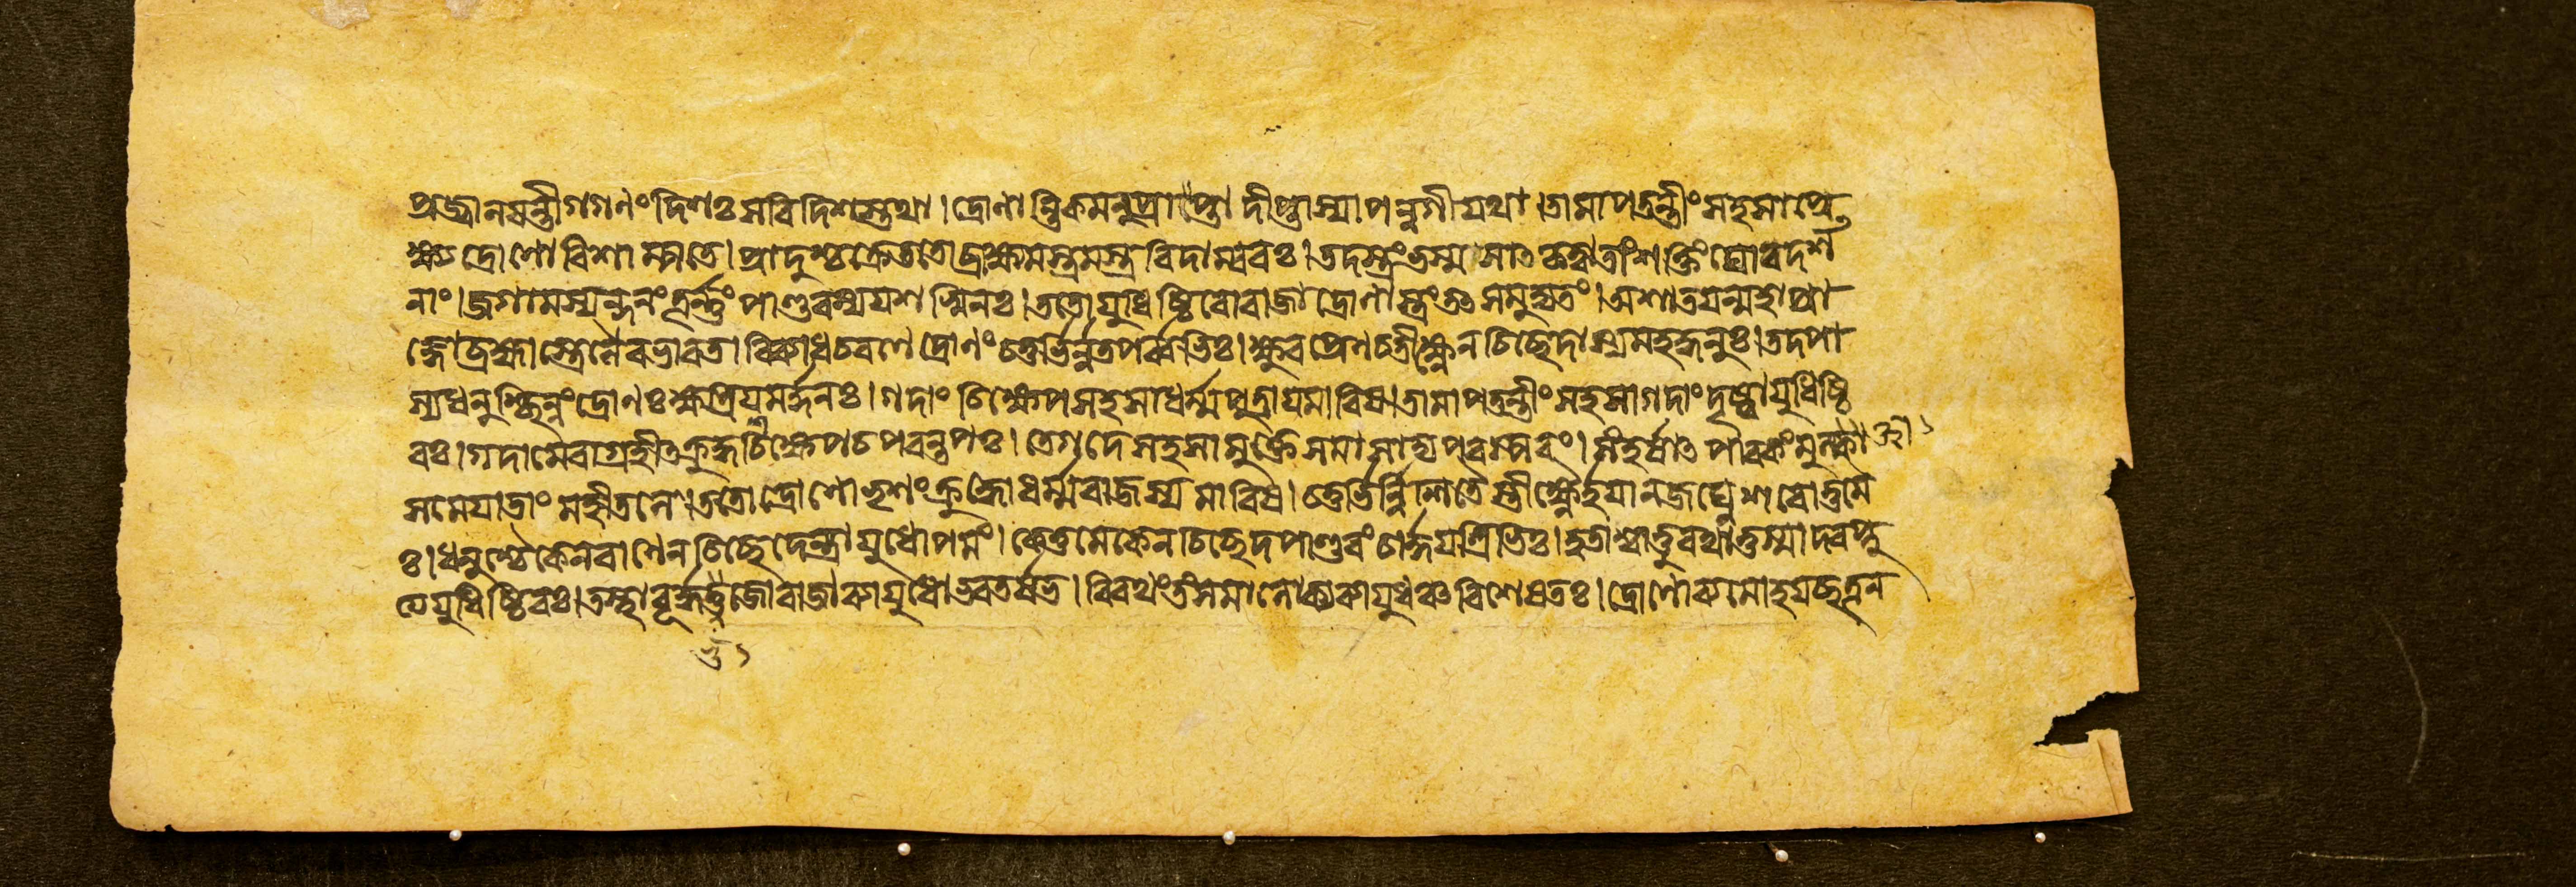 প্রজ্বালযন্তীগগণংদিশঃসবিদিশস্তথা।দ্রোণান্তিকমনুপ্রাপ্তাদীপ্তাস্যাপন্নগীযথা।তামাপতন্তীংসহসাপ্রে
ক্ষ্যদ্রোণোবিশাম্পতে।প্রাদুশ্চক্রেততোব্রাহ্মমস্ত্রমস্ত্রবিদাম্বরঃ।তদস্ত্রংভস্মসাৎকৃত্বাতাংশক্তিংঘোরদর্শ
নাং।জগামস্যন্দনংতূর্ন্নংপাণ্ডবস্যযশস্বিনঃ।ততোযুধিষ্ঠিরোরাজাদ্রোণাস্ত্রংতৎসমুদ্যতং।অশাতযন্মহাপ্রা
জ্ঞোব্রহ্মাস্ত্রেনৈবভারত।বিব্যাধচরণেদ্রোণংচতুর্ভির্ন্নতপর্ব্বভিঃ।ক্ষুরপ্রেণচতীক্ষ্ণেনচিচ্ছেদাস্যমহদ্ধনুঃ।তদপা
স্যধনুশ্ছিন্নংদ্রোণঃক্ষত্রিযমর্দ্দনঃ।গদাংচিক্ষেপসহসাধর্ম্মপুত্রাযমারিষ।তামাপতন্তীংসহসাগদাংদৃষ্ট্বাযুধিষ্ঠি
রঃ।গদামেবাগ্রহীতক্রুদ্ধচিক্ষেপচপরন্তপঃ।তেগদেসহসামুক্তেসমাসাদ্যপরস্পরং।সংঘর্ষাৎপাবকংমুক্ত্বা
সমেযাতাংমহীতলে।ততোদ্রোণোভৃশংক্রুদ্ধোধর্ম্মরাজস্যমারিষ।চতুর্ভির্ন্নিশিতৈস্তীক্ষ্ণৈর্হযানজঘ্নেশরোত্তমৈ
ঃ।ধনুশ্চৈকেনবাণেনচিচ্ছেদেন্দ্রাযুধোপমং।কেতুমেকেনচিচ্ছেদপাণ্ডবংচার্দ্দযত্রিভিঃ।হতাশ্বাত্তুরথাত্তুস্মাদবপ্লু
ত্যযুধিষ্ঠিরঃ।তস্থাবূর্দ্ধভুজোরাজাব্যাযুধোভরতর্ষভ।বিরথংতংসমালোক্যব্যাযুধঞ্চবিশেষতঃ।দ্রোণোব্যমোহযচ্ছত্রূন